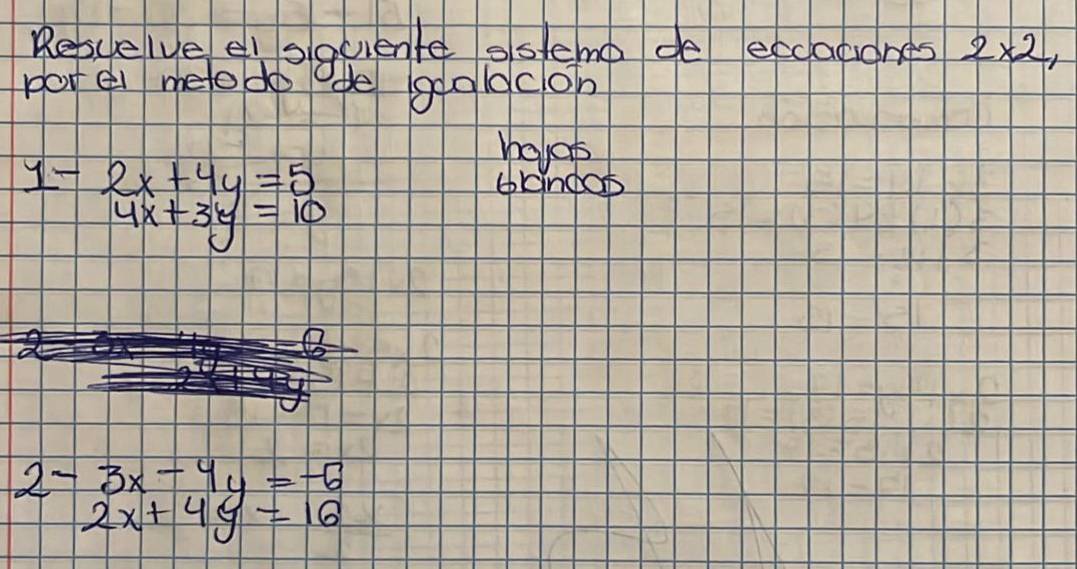 Resuelve el siguiente sistema de ecuaciones 2x2,
por el metodo de igualación
hojas
blancas
1- 2x + 4y = 5
4x + 3y = 10
2- 3x - 4y = -6
2x + 4y = 16